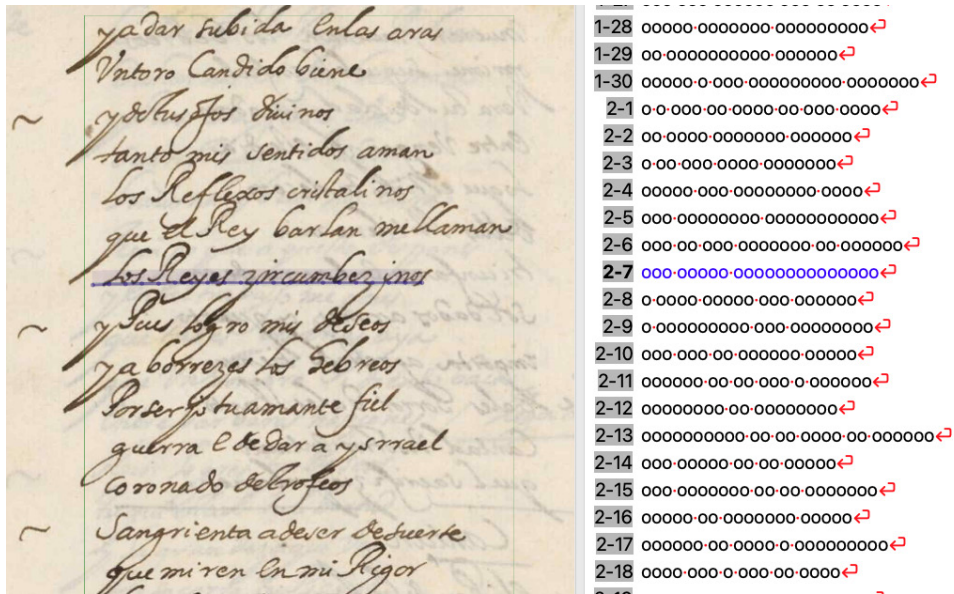 ya dar subida en las aras
Vn toro Candido biene
y de tus ojos diuinos
tanto mis sentidos aman
los Reflexos cristalinos
que el Rey barlan me llaman
los Reyes zircumbezinos
y Pues logro mis deseos
ya borrezes los hebreos
Por ser yo tu amante fiel
guerra e de dar a ysrrael
coronado de trofeos
Sangrienta a de ser de suerte
que miren en mi Rigor
1-28 ooooo·ooooooo·ooooooooo
1-29 oo·ooooooooooo·oooooo
1-30 ooooo·o·ooo·oooooooooo·ooooooo
2-1 o·o·ooo·oo·oooo·oo·ooo·oooo
2-2 oo·oooo·ooooooo·oooooo
2-3 o·oo·ooo·oooo·ooooooo
2-4 ooooo·ooo·oooooooo·oooo
2-5 ooo·oooooooo·ooooooooooo
2-6 ooo·oo·ooo·ooooooo·oo·oooooo
2-7 ooo·ooooo·oooooooooooooo
2-8 o·oooo·ooooo·ooo·oooooo
2-9 o·ooooooooo·ooo·oooooooo
2-10 ooo·ooo·oo·oooooo·ooooo
2-11 oooooo·oo·oo·ooo·o·oooooo
2-12 oooooooo·oo·oooooooo
2-13 oooooooooo·oo·oo·oooo·oo·oooooo
2-14 ooo·ooooo·oo·oo·ooooo
2-15 ooo·ooooooo·oo·oo·ooooooo
2-16 ooooo·oo·ooooooo·ooooo
2-17 oooooo·oo·oooo·o·ooooooooo
2-18 oooo·ooo·o·ooo·oo·oooo